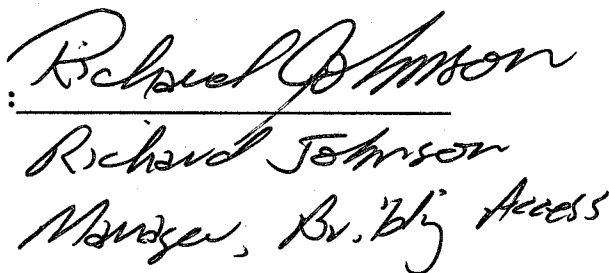 : Richard Johnson
Richard Johnson
Manager, Building Access